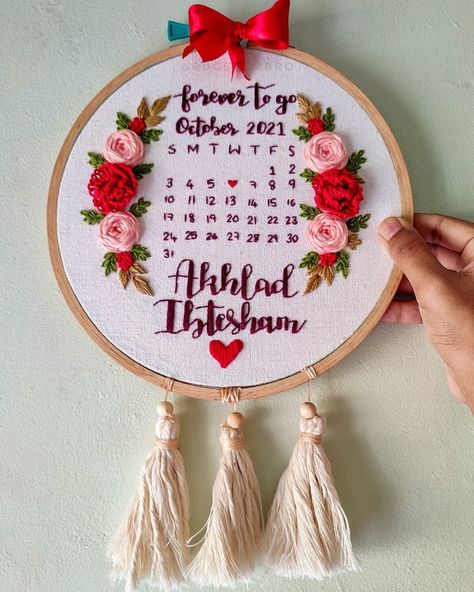 forever to go
October 2021
S M T W T F S
1 2
3 4 5 ♥ 7 8 9
10 11 12 13 14 15 16
17 18 19 20 21 22 23
24 25 26 27 28 29 30
31
Akhlad
Ibtesham